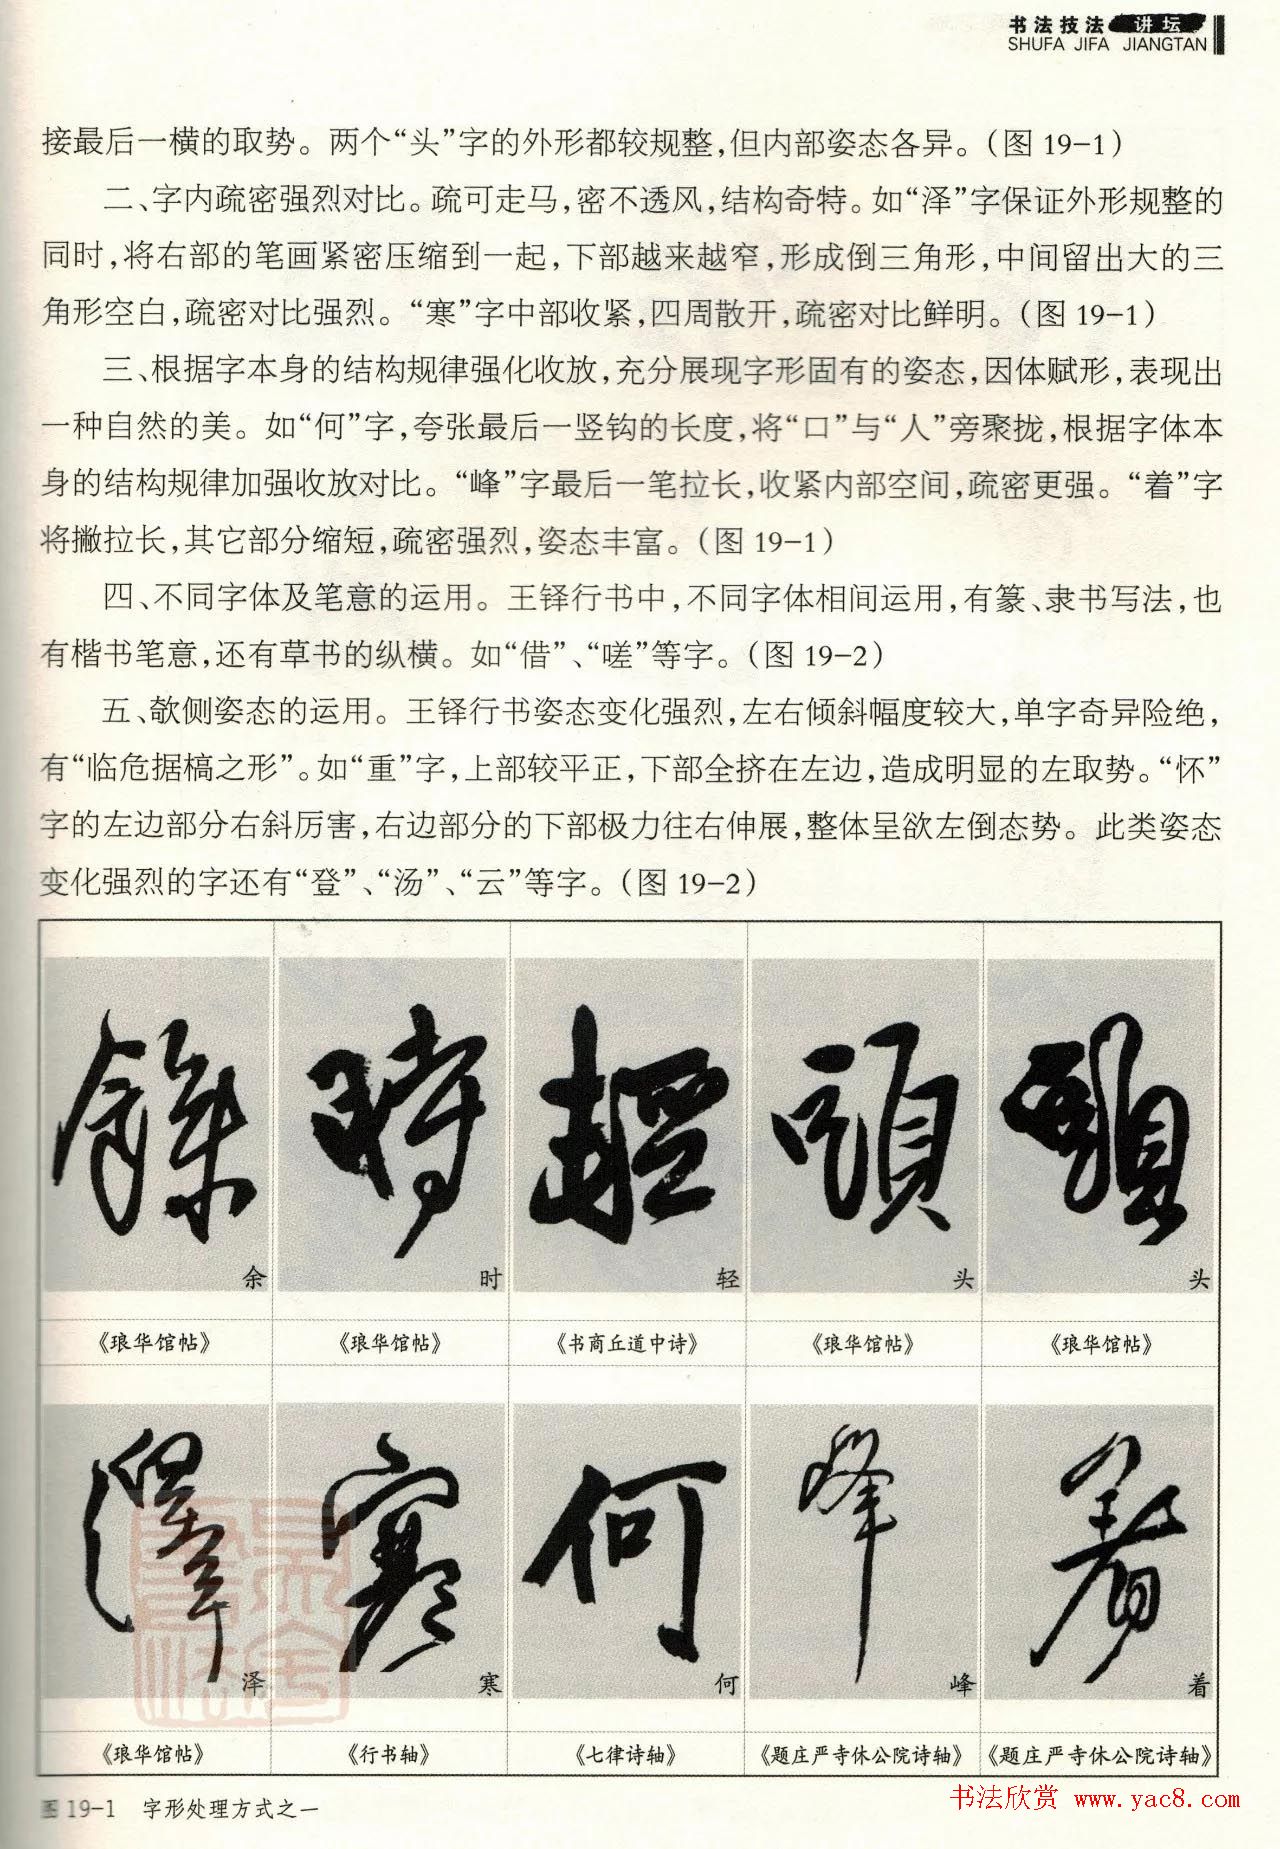 书法技法 讲坛
SHUFA JIFA JIANGTAN
接最后一横的取势。两个“头”字的外形都较规整，但内部姿态各异。（图 19-1）
二、字内疏密强烈对比。疏可走马，密不透风，结构奇特。如“泽”字保证外形规整的
同时，将右部的笔画紧密压缩到一起，下部越来越窄，形成倒三角形，中间留出大的三
角形空白，疏密对比强烈。“寒”字中部收紧，四周散开，疏密对比鲜明。（图 19-1）
三、根据字本身的结构规律强化收放，充分展现字形固有的姿态，因体赋形，表现出
一种自然的美。如“何”字，夸张最后一竖钩的长度，将“口”与“人”旁聚拢，根据字体本
身的结构规律加强收放对比。“峰”字最后一笔拉长，收紧内部空间，疏密更强。“着”字
将撇拉长，其它部分缩短，疏密强烈，姿态丰富。（图 19-1）
四、不同字体及笔意的运用。王铎行书中，不同字体相间运用，有篆、隶书写法，也
有楷书笔意，还有草书的纵横。如“借”、“嗟”等字。（图 19-2）
五、欹侧姿态的运用。王铎行书姿态变化强烈，左右倾斜幅度较大，单字奇异险绝，
有“临危据槁之形”。如“重”字，上部较平正，下部全挤在左边，造成明显的左取势。“怀”
字的左边部分右斜厉害，右边部分的下部极力往右伸展，整体呈欲左倒态势。此类姿态
变化强烈的字还有“登”、“汤”、“云”等字。（图 19-2）
餘 時 輕 頭 頭
余 时 轻 头 头
《琅华馆帖》 《琅华馆帖》 《书商丘道中诗》 《琅华馆帖》 《琅华馆帖》
澤 寒 何 峰 着
泽 寒 何 峰 着
《琅华馆帖》 《行书轴》 《七律诗轴》 《题庄严寺休公院诗轴》 《题庄严寺休公院诗轴》
图 19-1 字形处理方式之一
书法欣赏 www.yac8.com